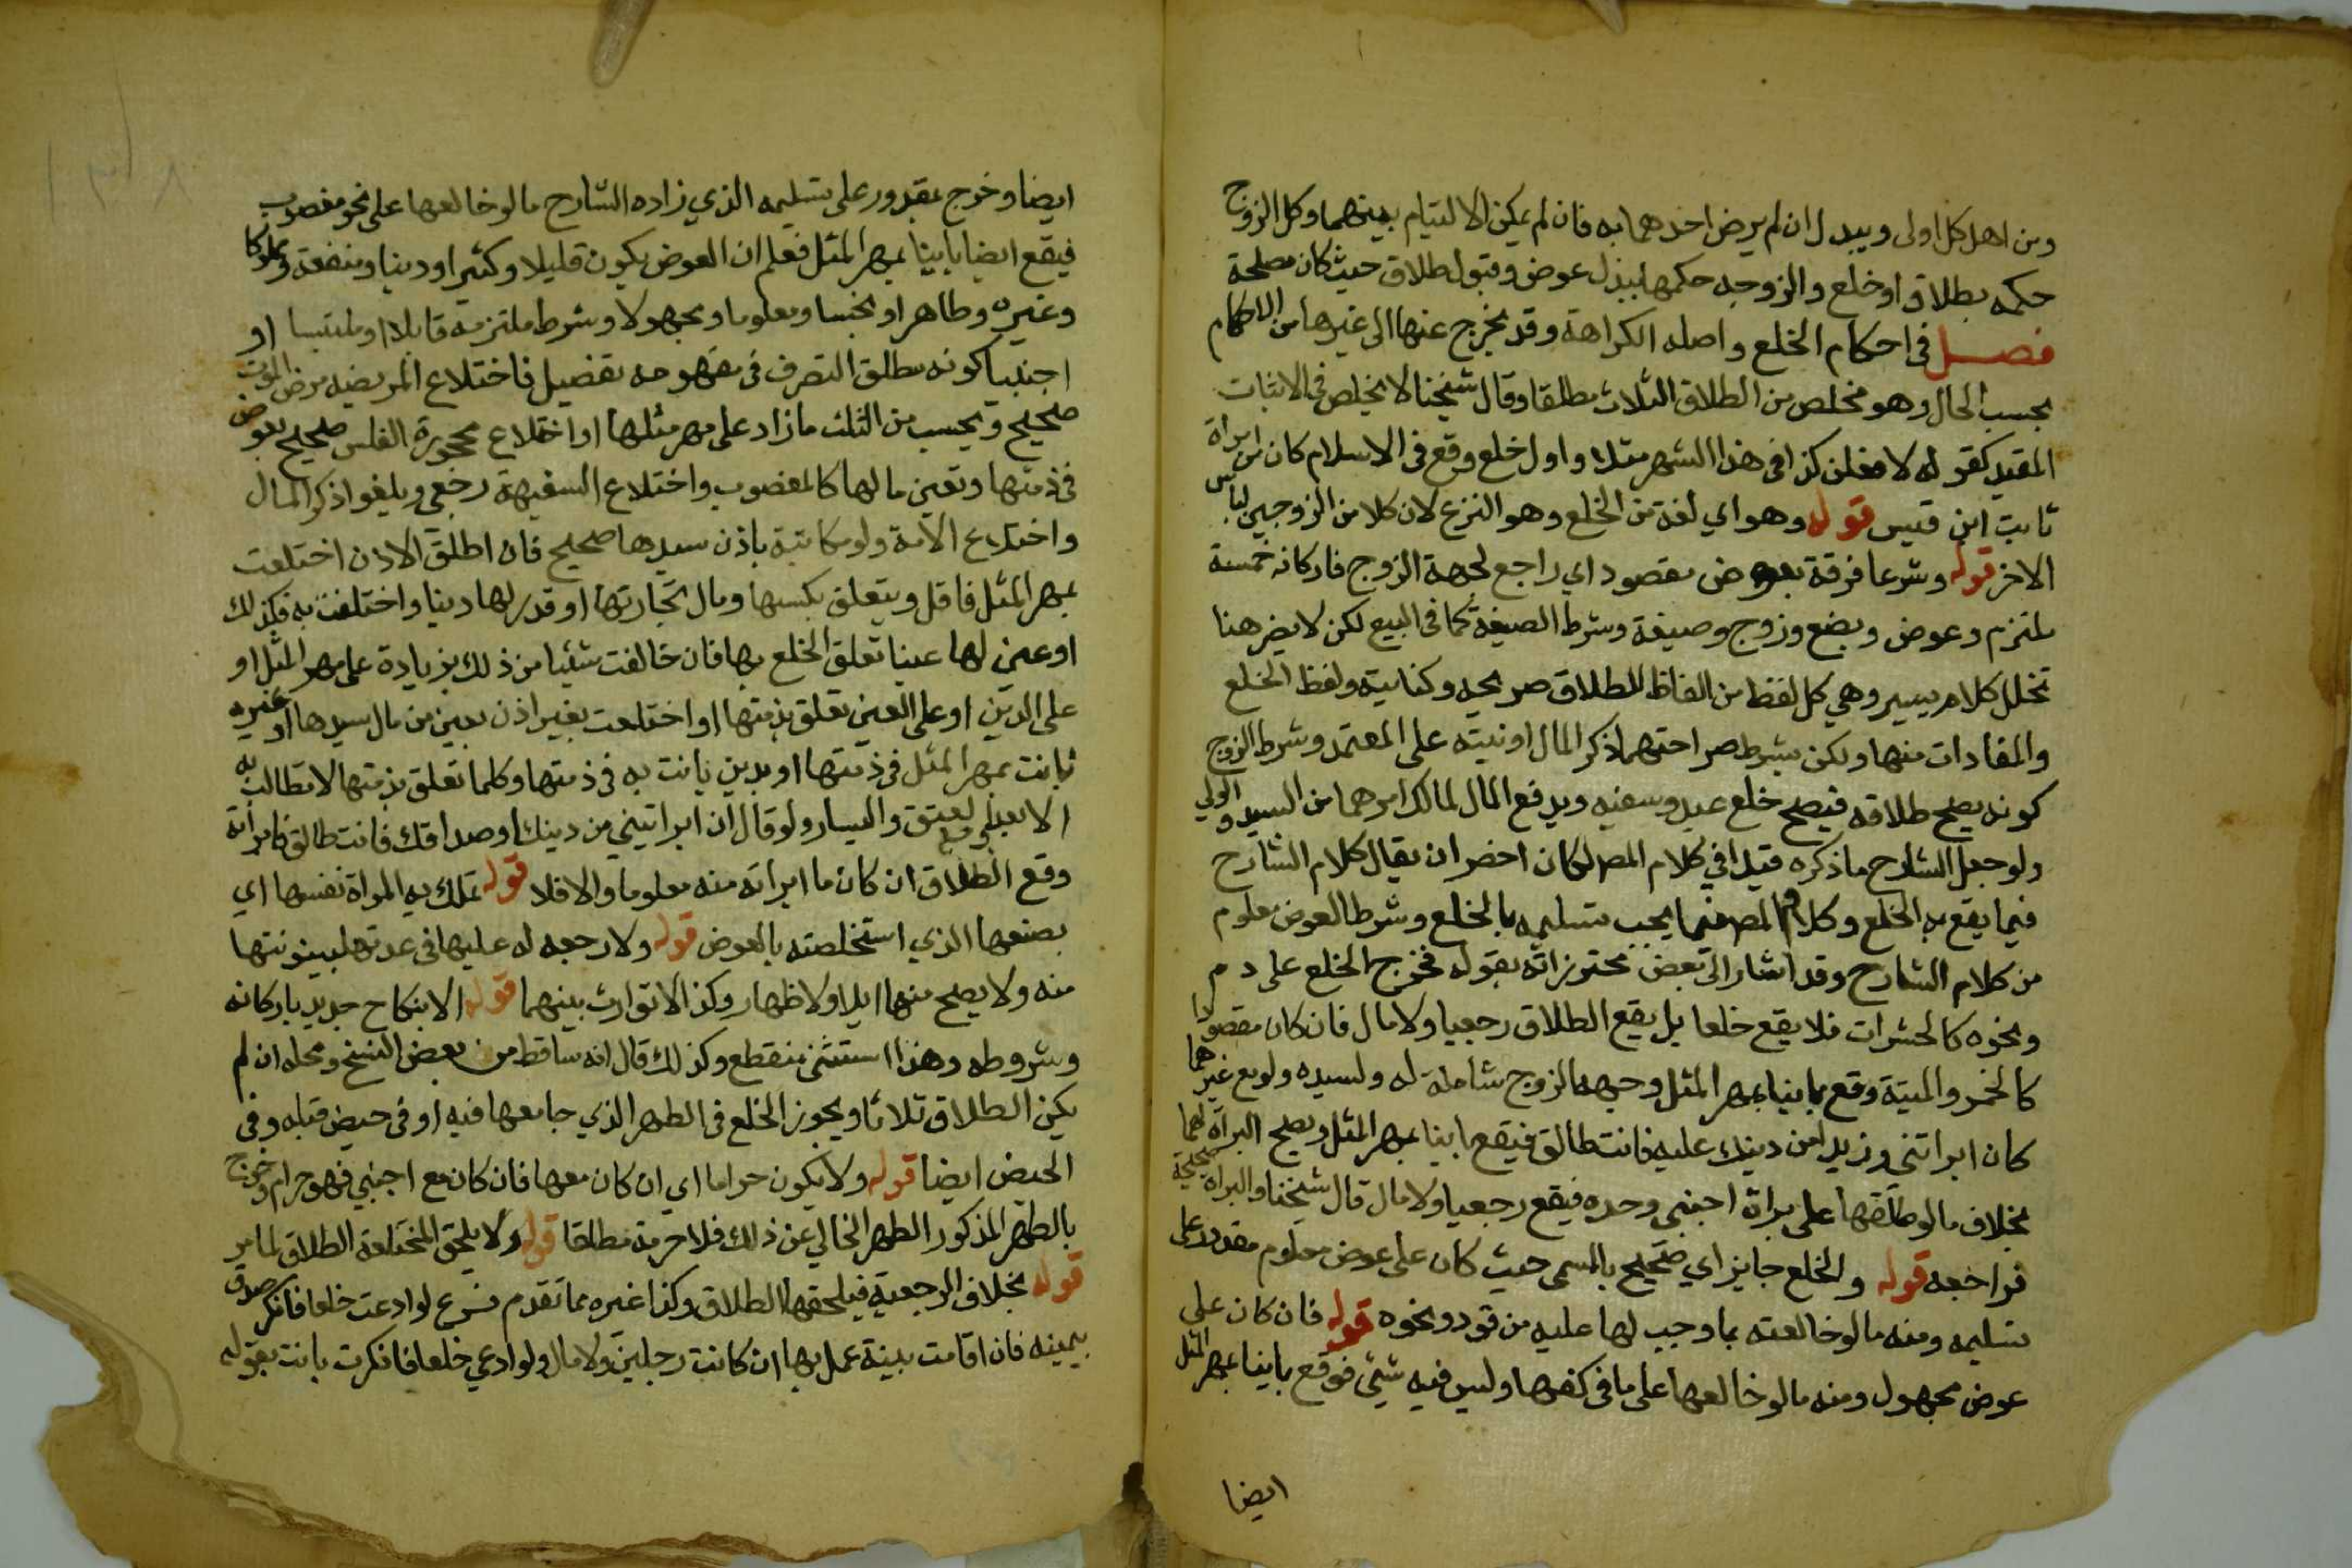 ومن اهل كل اولى ويبدل ان لم يرض احدهما به فان لم يمكن الالتيام بينهما وكل الزوج
حكمه بطلاق او خلع والزوجه حكمها ببذل عوض وقبول طلاق حيث كان مصلحة
فصل في احكام الخلع واصله الكراهة وقد يخرج عنها الى غيرها من الاحكام
بحسب الحال وهو مخلص من الطلاق الثلاث مطلقا وقال شيخنا لا يخلص في الاثبات
المقيد كقوله لافعلن كذا في هذا الشهر مثلا واول خلع وقع في الاسلام كان من امراة
ثابت ابن قيس قوله وهو اي لغة من الخلع وهو النزع لان كلا من الزوجين لباس
الاخر قوله وشرعا فرقة بعوض مقصود اي راجع لجهة الزوج فاركانه خمسة
ملتزم وعوض وبضع وزوج وصيغة وشرط الصيغة كما في البيع لكن لا يضر هنا
تخلل كلام يسير وهي كل لفظ من الفاظ الطلاق صريحه وكنايته ولفظ الخلع
والمفادات منها ولكن بشرط صراحتهما ذكر المال او نيته على المعتمد وشرط الزوج
كونه يصح طلاقه فيصح خلع عبد وسفيه ويدفع المال لمالك امرهما من السيد والولي
ولو جعل الشارح ما ذكره قيدا في كلام المص لكان احضر ان يقال كلام الشارح
فيما يقع به الخلع وكلام المص فيما يجب تسليمه بالخلع وشرط العوض معلوم
من كلام الشارح وقد اشار الى بعض محترزاته بقوله فخرج الخلع على دم
ونحوه كالحشرات فلا يقع خلعا بل يقع الطلاق رجعيا ولا مال فان كان مقصودا
كالخمر والميتة وقع باينا بمهر المثل وجهة الزوج شاملة له ولسيده ولو مع غيرهما
كان ابراتني وزيدا من دينك عليه فانت طالق فيقع باينا بمهر المثل ويصح البراة لهما
بخلاف ما لو طلقها على براة اجنبي وحده فيقع رجعيا ولا مال قال شيخنا والبراة صحيحة
فراجعه قوله والخلع جايز اي صحيح بالمسمى حيث كان على عوض معلوم مقدور على
تسليمه ومنه ما لو خالعته بما وجب لها عليه من قود ونحوه قوله فان كان على
عوض مجهول ومنه ما لو خالعها على ما في كفها وليس فيه شيئ فوقع باينا بمهر المثل
ايضا
ايضا وخرج بمقدور على تسليمه الذي زاده الشارح ما لو خالعها على نحو مغصوب
فيقع ايضا باينا بمهر المثل فعلم ان العوض يكون قليلا وكثيرا ودينا ومنفعة ومملوكا
وغيره وطاهرا ونجسا ومعلوما ومجهولا وشرط ملتزمه قابلا او ملتمسا او
اجنبيا كونه مطلق التصرف في مفهومه تفصيل فاختلاع المريضه مرض الموت
صحيح ويحسب من الثلث ما زاد على مهر مثلها او اختلاع محجورة الفلس صحيح بعوض
في ذمتها وبعين مالها كالمغصوب واختلاع السفيهة رجعي ويلغوا ذكر المال
واختلاع الامة ولو مكاتبة باذن سيدها صحيح فان اطلق الاذن اختلعت
بمهر المثل فاقل ويتعلق بكسبها ومال تجارتها او قدر لها دينا واختلعت به فكذلك
او عين لها عينا تعلق الخلع بها فان خالفت شيئا من ذلك بزيادة على مهر المثل او
على الدين او على العين تعلق بذمتها او اختلعت بغير اذن بعين من مال سيدها او غيره
بانت بمهر المثل في ذمتها او بدين بانت به في ذمتها وكلما تعلق بذمتها لا تطالب به
الا بعد العتق واليسار ولو قال ان ابراتيني من دينك او صداقك فانت طالق فابراته
وقع الطلاق ان كان ما ابراته منه معلوما والا فلا قوله تملك به المراة نفسها اي
بضعها الذي استخلصته بالعوض قوله ولا رجعه له عليها في عدتها لبينونتها
منه ولا يصح منها ايلا ولا ظهار وكذا لا توارث بينهما قوله الا بنكاح جديد باركانه
وشروطه وهذا استثنى منقطع وكذلك قال انه ساقط من بعض النسخ ومحله ان لم
يكن الطلاق ثلاثا ويجوز الخلع في الطهر الذي جامعها فيه او في حيض قبله وفي
الحيض ايضا قوله ولا يكون حراما اي ان كان معها فان كان مع اجنبي فهو حرام وخرج
بالطهر المذكور الطهر الخالي عن ذلك فلا حرمة مطلقا قوله ولا يلحق المختلعة الطلاق لما مر
قوله بخلاف الرجعية فيلحقها الطلاق وكذا غيره مما تقدم فرع لو ادعت خلعا فانكر صدق
بيمينه فان اقامت بينة عمل بها ان كانت رجلين ولا مال ولو ادعي خلعا فانكرت بانت بقوله
١٣٨